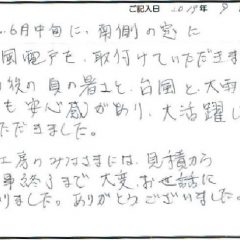 ご記入日 2015年 9
6月中旬に、南側の窓に
風雨戸を、取付けていただきま
後の夏の暑さと、台風と大雨
も安心感があり、大活躍し
ただきました。
工房のみなさまには、見積から
事終了まで大変、お世話に
りました。ありがとうございました。